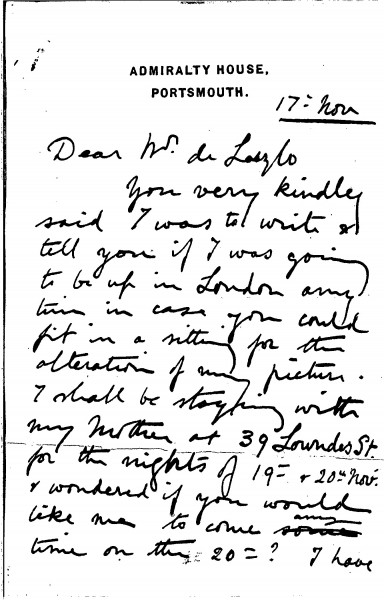 ADMIRALTY HOUSE,
PORTSMOUTH.
17th Nov
Dear Mr. de Laszlo
You very kindly
said I was to write &
tell you if I was going
to be up in London any
time in case you could
fit in a sitting for the
alteration of my picture.
I shall be staying with
my Mother at 39 Lowndes St.
for the nights of 19th & 20th Nov.
& wondered if you would
like me to come any some
time on the 20th? I have